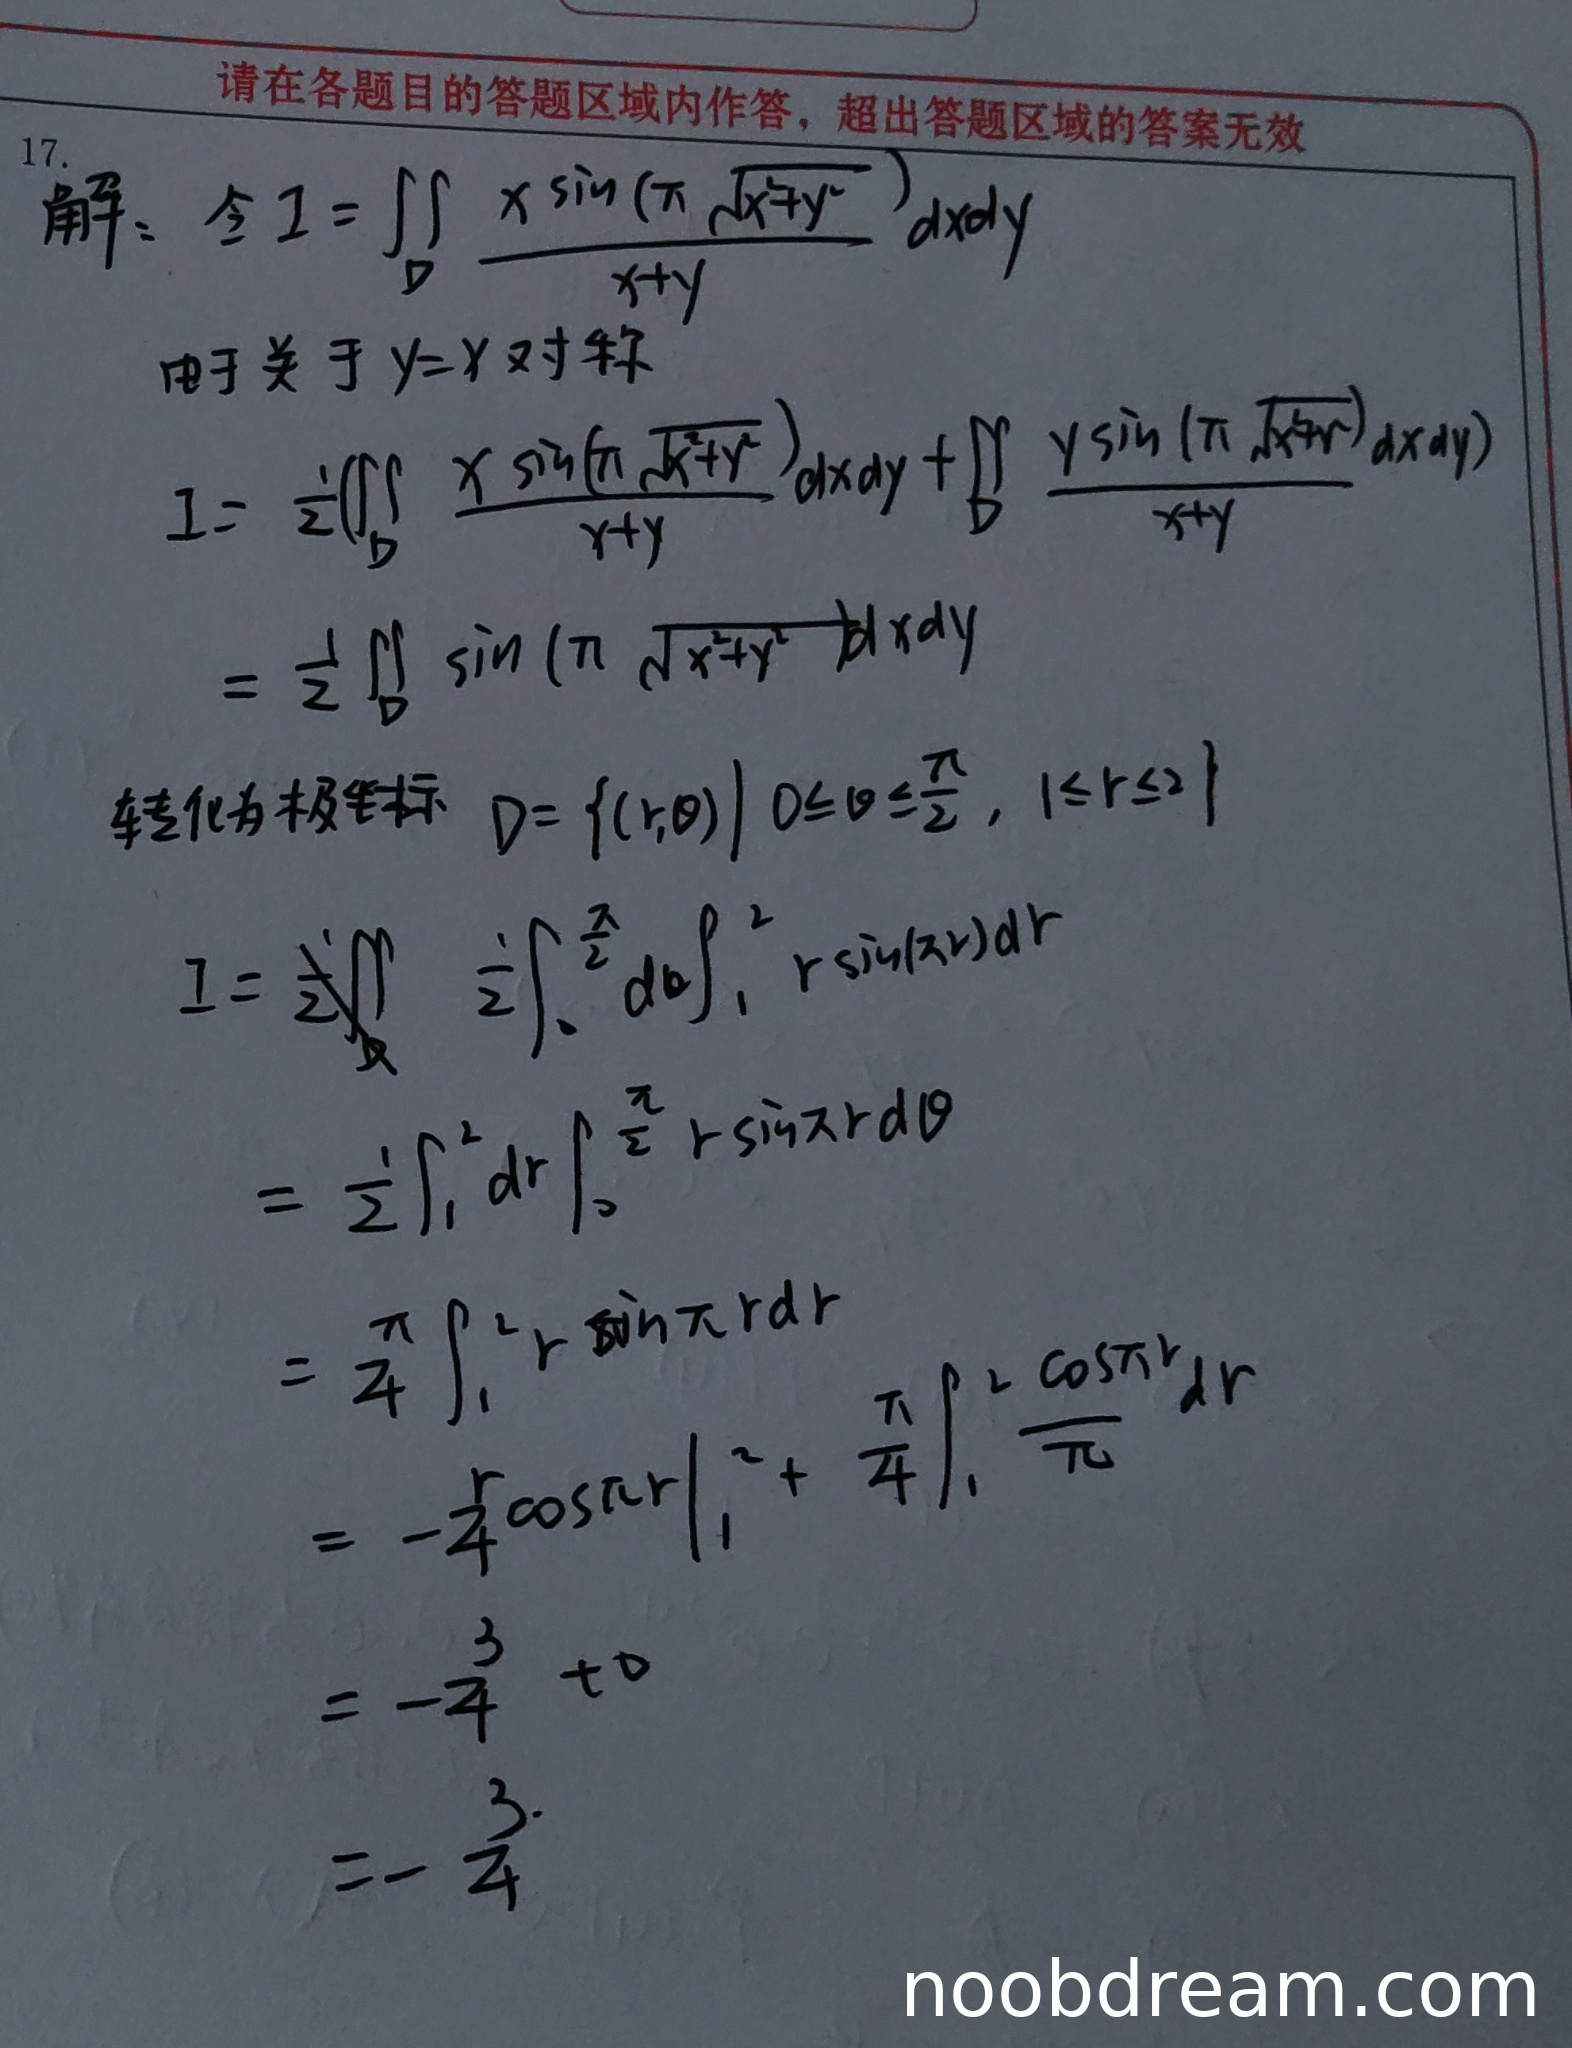 请在各题目的答题区域内作答，超出答题区域的答案无效
17.
解：令 I = ∬_D x sin(π√(x²+y²))/(x+y) dxdy
由于关于 y=x 对称
I = 1/2(∬_D x sin(π√(x²+y²))/(x+y) dxdy + ∬_D y sin(π√(x²+y²))/(x+y) dxdy)
= 1/2 ∬_D sin(π√(x²+y²))dxdy
转化为极坐标 D = {(r,θ)| 0≤θ≤π/2, 1≤r≤2}
I = 1/2 ∫_0^(π/2) dθ ∫_1^2 r sin(πr)dr
= 1/2 ∫_1^2 dr ∫_0^(π/2) r sinπr dθ
= π/4 ∫_1^2 r sinπr dr
= -r/4 cosπr |_1^2 + π/4 ∫_1^2 cosπr/π dr
= -3/4 +0
= -3/4.
noobdream.com